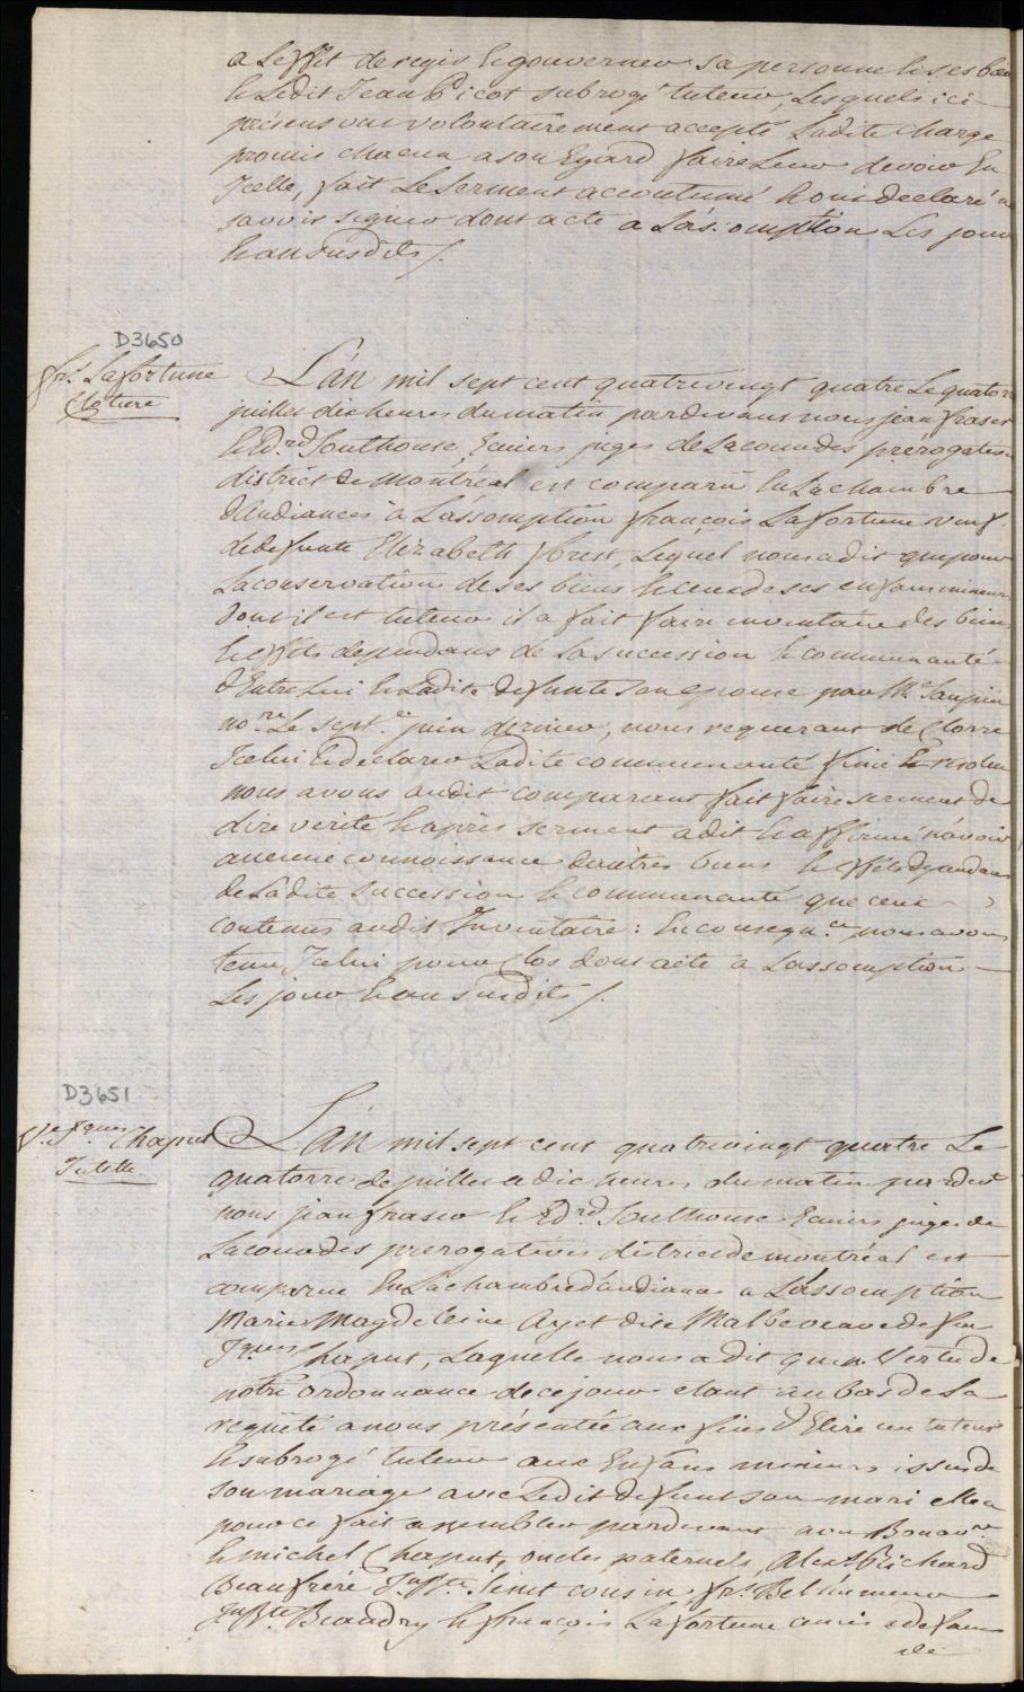 a Leffet de regir & gouverner sa personne & ses biens
& Ledit Jean Picot subrogé tuteur, Lesquels ici
présens ont volontairement accepté Ladite charge
promis chacun a son Egard faire Leur devoir En
Icelle, fait Le Serment accoutumé & ont declaré ne
savoir signer dont acte a L'as.omption Les jour
& an susdits /.
D3650
fr.s Lafortune
Cloture
L'an mil sept cent quatrevingt quatre Le quatorze
juillet dix heures du matin pardevant nous jean fraser
& Ed.rd Southouse Ecuiers juges de La cour des prérogatives
district de Montréal est comparu En La chambre
d'Audiances à L'assomption françois Lafortune veuf
de defunte Elizabeth forest, Lequel nous a dit que pour
La conservation de ses biens & ceux de ses enfans mineurs
dont il est tuteur il a fait faire inventaire des biens
& effets dependans de La succession & communauté
d'Entre Lui & Ladite defunte son epouse par M.e
no.re Le sept.e juin dernier, nous requerant de Clorre
Icelui & declarer Ladite communauté finie & resolue
nous avons audit comparant fait faire serment de
dire verité & après serment a dit & affirmé n'avoir
aucune connoissance d'autres biens & effets dependans
de Ladite Succession & communauté que ceux
contenus audit Inventaire : En consequ.ce nous avons
tenu Icelui pour Clos dont acte à Lassomption
Les jour & an susdits /.
D3651
V.e Jques Chaput
Tutelle
L'An mil sept cent quatrevingt quatre Le
quatorze de juillet a dix heures du matin pardevt
nous jean fraser & Ed.rd Southouse Ecuiers juges de
La cour des prerogatives district de montréal est
comparue En La chambre d'audiance a L'assomption
Marie Magdeleine Ayet dite Malbo veuve de feu
Jques Chaput, Laquelle nous a dit qu'en Vertu de
notre ordonnance de ce jour etant au bas de La
requête a nous présentée aux fins d'Elire un tuteur
& subrogé tuteur aux Enfans mineurs issus de
son mariage avec Ledit defunt son mari elle a
pour ce fait assembler pardevant nous Bonav.re
& michel Chaput, oncles paternels, Alex.s Richard
Beaufrère J.n Bte cousin fr.s
J.n Bte Beaudry & françois Lafortune amis a defaut
de